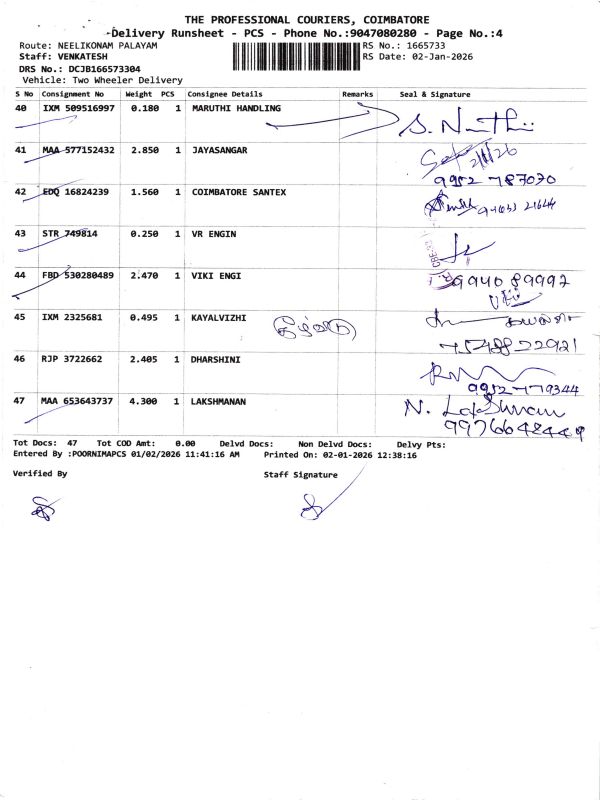 THE PROFESSIONAL COURIERS, COIMBATORE
Delivery Runsheet - PCS - Phone No.:9047080280 - Page No.:4
Route: NEELIKONAM PALAYAM RS No.: 1665733
Staff: VENKATESH RS Date: 02-Jan-2026
DRS No.: DCJB166573304
Vehicle: Two Wheeler Delivery
S No Consignment No Weight PCS Consignee Details Remarks Seal & Signature
40 IXM 509516997 0.180 1 MARUTHI HANDLING
41 MAA 577152432 2.850 1 JAYASANGAR 2/1/26
9952 787070
42 EDQ 16824239 1.560 1 COIMBATORE SANTEX
43 STR 749814 0.250 1 VR ENGIN
44 FBD 530280489 2.470 1 VIKI ENGI 99940 89997
45 IXM 2325681 0.495 1 KAYALVIZHI
75488 22921
46 RJP 3722662 2.405 1 DHARSHINI
9952-779344
47 MAA 653643737 4.300 1 LAKSHMANAN N. Lakshmanan
9976648449
Tot Docs: 47 Tot COD Amt: 0.00 Delvd Docs: Non Delvd Docs: Delvy Pts:
Entered By :POORNIMAPCS 01/02/2026 11:41:16 AM Printed On: 02-01-2026 12:38:16
Verified By Staff Signature